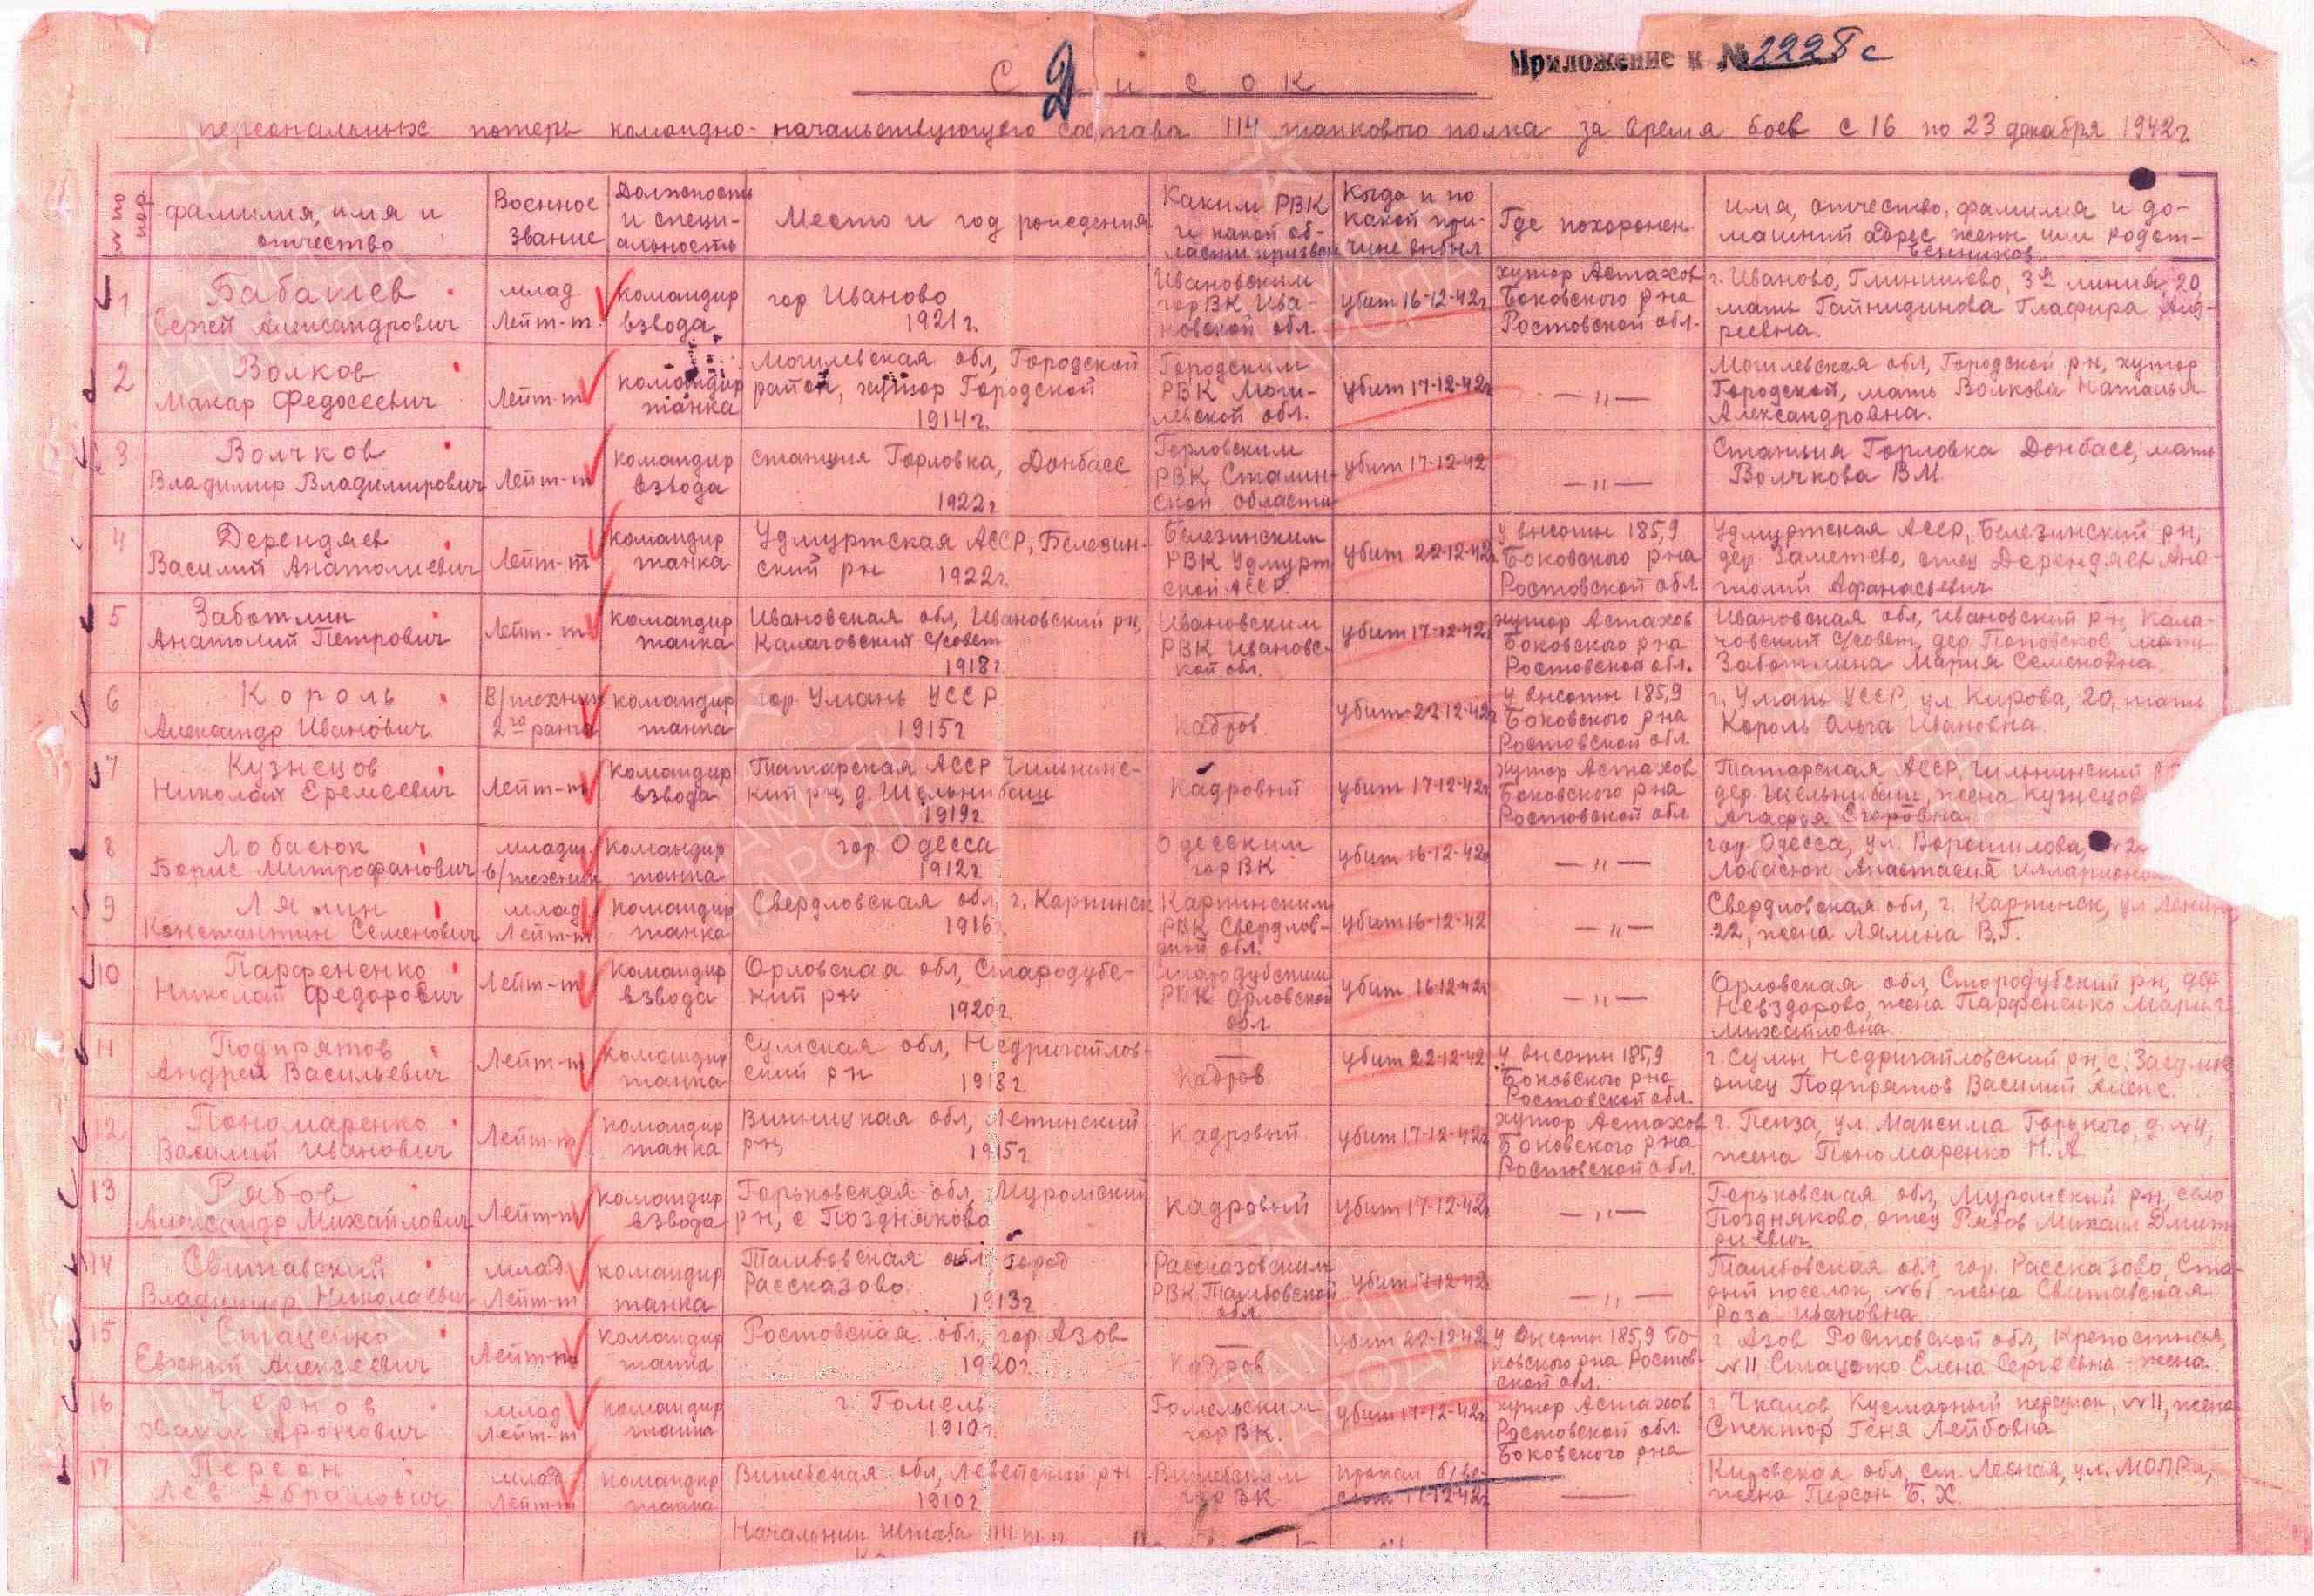 Приложение к № 2228с
Список
персональных потерь командно-начальствующего состава 114 танкового полка за время боев с 16 по 23 декабря 1942г
№ по пор
Фамилия, имя и отчество
Военное звание
Должность и специальность
Место и год рождения
Каким РВК и какой области призван
Когда и по какой причине выбыл
Где похоронен
имя, отчество, фамилия и домашний адрес жены или родственников
1
Бабашев
Сергей Александрович
млад.
Лейт-т
командир
взвода
гор Иваново
1921г.
Ивановским
гор ВК Ива-
новской обл.
убит 16-12-42г
хутор Астахов
Боковского р на
Ростовской обл.
г. Иваново, Глинищево, 3я линия, 20
мать Гайнидинова Глафира Анд-
реевна.
2
Волков
Макар Федосеевич
Лейт-т
командир
танка
Могилевская обл, Городской
район, хутор Городской
1914г.
Городским
РВК Моги-
левской обл.
убит 17-12-42г
—"—
Могилевская обл, Городской рн, хутор
Городской, мать Волкова Наталья
Александровна.
3
Волчков
Владимир Владимирович
Лейт-т
командир
взвода
станция Горловка, Донбасс
1922г
Горловским
РВК Сталин-
ской области
убит 17-12-42
—"—
Станция Горловка Донбасс, мать
Волчкова В.М.
4
Дерендяев
Василий Анатолиевич
Лейт-т
командир
танка
Удмуртская АССР, Белезин-
ский рн 1922г
Белезинским
РВК Удмурт
ской АССР.
убит 22-12-42г
у высоты 185,9
Боковского р на
Ростовской обл.
Удмуртская АССР, Белезинский рн,
дер. Заметево, отец Дерендяев Ана-
толий Афанасьевич
5
Заботлин
Анатолий Петрович
Лейт-т
командир
танка
Ивановская обл, Ивановский рн,
Калачовский с/совет
1918г
Ивановским
РВК Ивановс-
кой обл.
убит 17-12-42г
хутор Астахов
Боковского р на
Ростовской обл.
Ивановская обл, Ивановский рн, Кала-
човский с/совет, дер. Поповское, мать
Заботлина Мария Семеновна
6
Король
Александр Иванович
В/техник
2го ранга
командир
танка
гор. Умань УССР
1915г
Кадров.
убит 22-12-42г
у высоты 185,9
Боковского р на
Ростовской обл.
г. Умань УССР, ул Кирова, 20, мать
Король Ольга Ивановна
7
Кузнецов
Николай Еремеевич
Лейт-т
командир
взвода
Татарская АССР Чильнинс-
кий рн, д. Шельнибаш
1919г.
Кадровый
убит 17-12-42г
хутор Астахов
Боковского р на
Ростовской обл
Татарская АССР, Чильнинский
дер. Шельнибаш, жена Кузнецов
Агафья Егоровна
8
Лобасюк
Борис Митрофанович
младш.
в/техник
командир
танка
гор Одесса
1912г.
Одесским
гор ВК
убит 16-12-42г
—"—
гор. Одесса, ул. Ворошилова,
Лобасюк Анастасия
9
Лялин
Константин Семенович
млад
Лейт-т
командир
танка
Свердловская обл, г. Карпинск
1916г
Карпинским
РВК Свердлов-
ской обл.
убит 16-12-42
—"—
Свердловская обл, г. Карпинск, ул Ленина
22, жена Лялина В.Г.
10
Парфененко
Николай Федорович
Лейт-т
командир
взвода
Орловская обл, Стародубс-
кий рн
1920г.
Стародубским
РВК Орловской
обл.
убит 16-12-42г
—"—
Орловская обл, Стародубский рн, дер
Невздорово, жена Парфененко Мария
Михайловна
11
Подпрятов
Андрей Васильевич
Лейт-т
командир
танка
Сумская обл, Недригайлов-
ский рн 1918г.
Кадров
убит 22-12-42
у высоты 185,9
Боковского р на
Ростовской обл.
г. Сумы, Недригайловский рн, с.
отец Подпрятов Василий Алекс.
12
Пономаренко
Василий Иванович
Лейт-т
командир
танка
Винницкая обл, Летинский
р-н, 1915г
Кадровый
убит 17-12-42г
хутор Астахов
Боковского р на
Ростовской обл.
г. Пенза, ул. Максима Горького, д. №4,
жена Пономаренко Н.А.
13
Рябов
Александр Михайлович
Лейт-т
командир
взвода
Горьковская обл, Муромский
рн, с Поздняково
Кадровый
убит 17-12-42г
—"—
Горьковская обл, Муромский рн, село
Поздняково, отец Рябов Михаил Дмит-
риевич
14
Свитавский
Владимир Николаевич
млад
Лейт-т
командир
танка
Тамбовская обл город
Рассказово
1913г
Рассказовским
РВК Тамбовской
обл
убит 17-12-42
—"—
Тамбовская обл, гор. Рассказово, Ста-
рый поселок, №61, жена Свитавская
Роза Ивановна
15
Стаценко
Евгений Алексеевич
Лейт-т
командир
танка
Ростовская обл, гор. Азов
1920г.
Кадров
убит 22-12-42
у высоты 185,9 Бо-
ковского рна Ростов-
ской обл.
г Азов Ростовской обл, Крепостная,
№11 Стаценко Елена Сергеевна - жена.
16
Чернов
Хаим Аронович
млад
Лейт-т
командир
танка
г. Гомель
1910г.
Гомельским
гор ВК.
убит 17-12-42г
хутор Астахов
Ростовской обл.
Боковского р на
г. Чкалов, Кустарный переулок, №11, жена
Спектор Геня Лейбовна
17
Персон
Лев Абрамович
млад
Лейт-т
командир
танка
Витебская обл, рн
1910г.
Витебским
гор ВК
пропал б/ве-
сти 17-12-42г
—
Кировская обл, ст. Лесная, ул. МОПРа,
жена Персон Б.Х.
Начальник штаба 114 т п